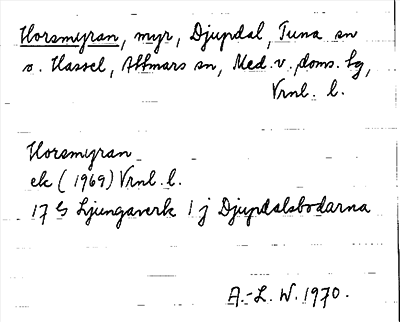 Horsmyran, myr, Djupdal, Tuna sn
o. Hassel, Attmars sn, Med. v. doms. hg,
Vrnl. l.
Horsmyran
ek (1969) Vrnl. l.
17 G Ljungaverk 1 j Djupdalsbodarna
A.-L. W. 1970.